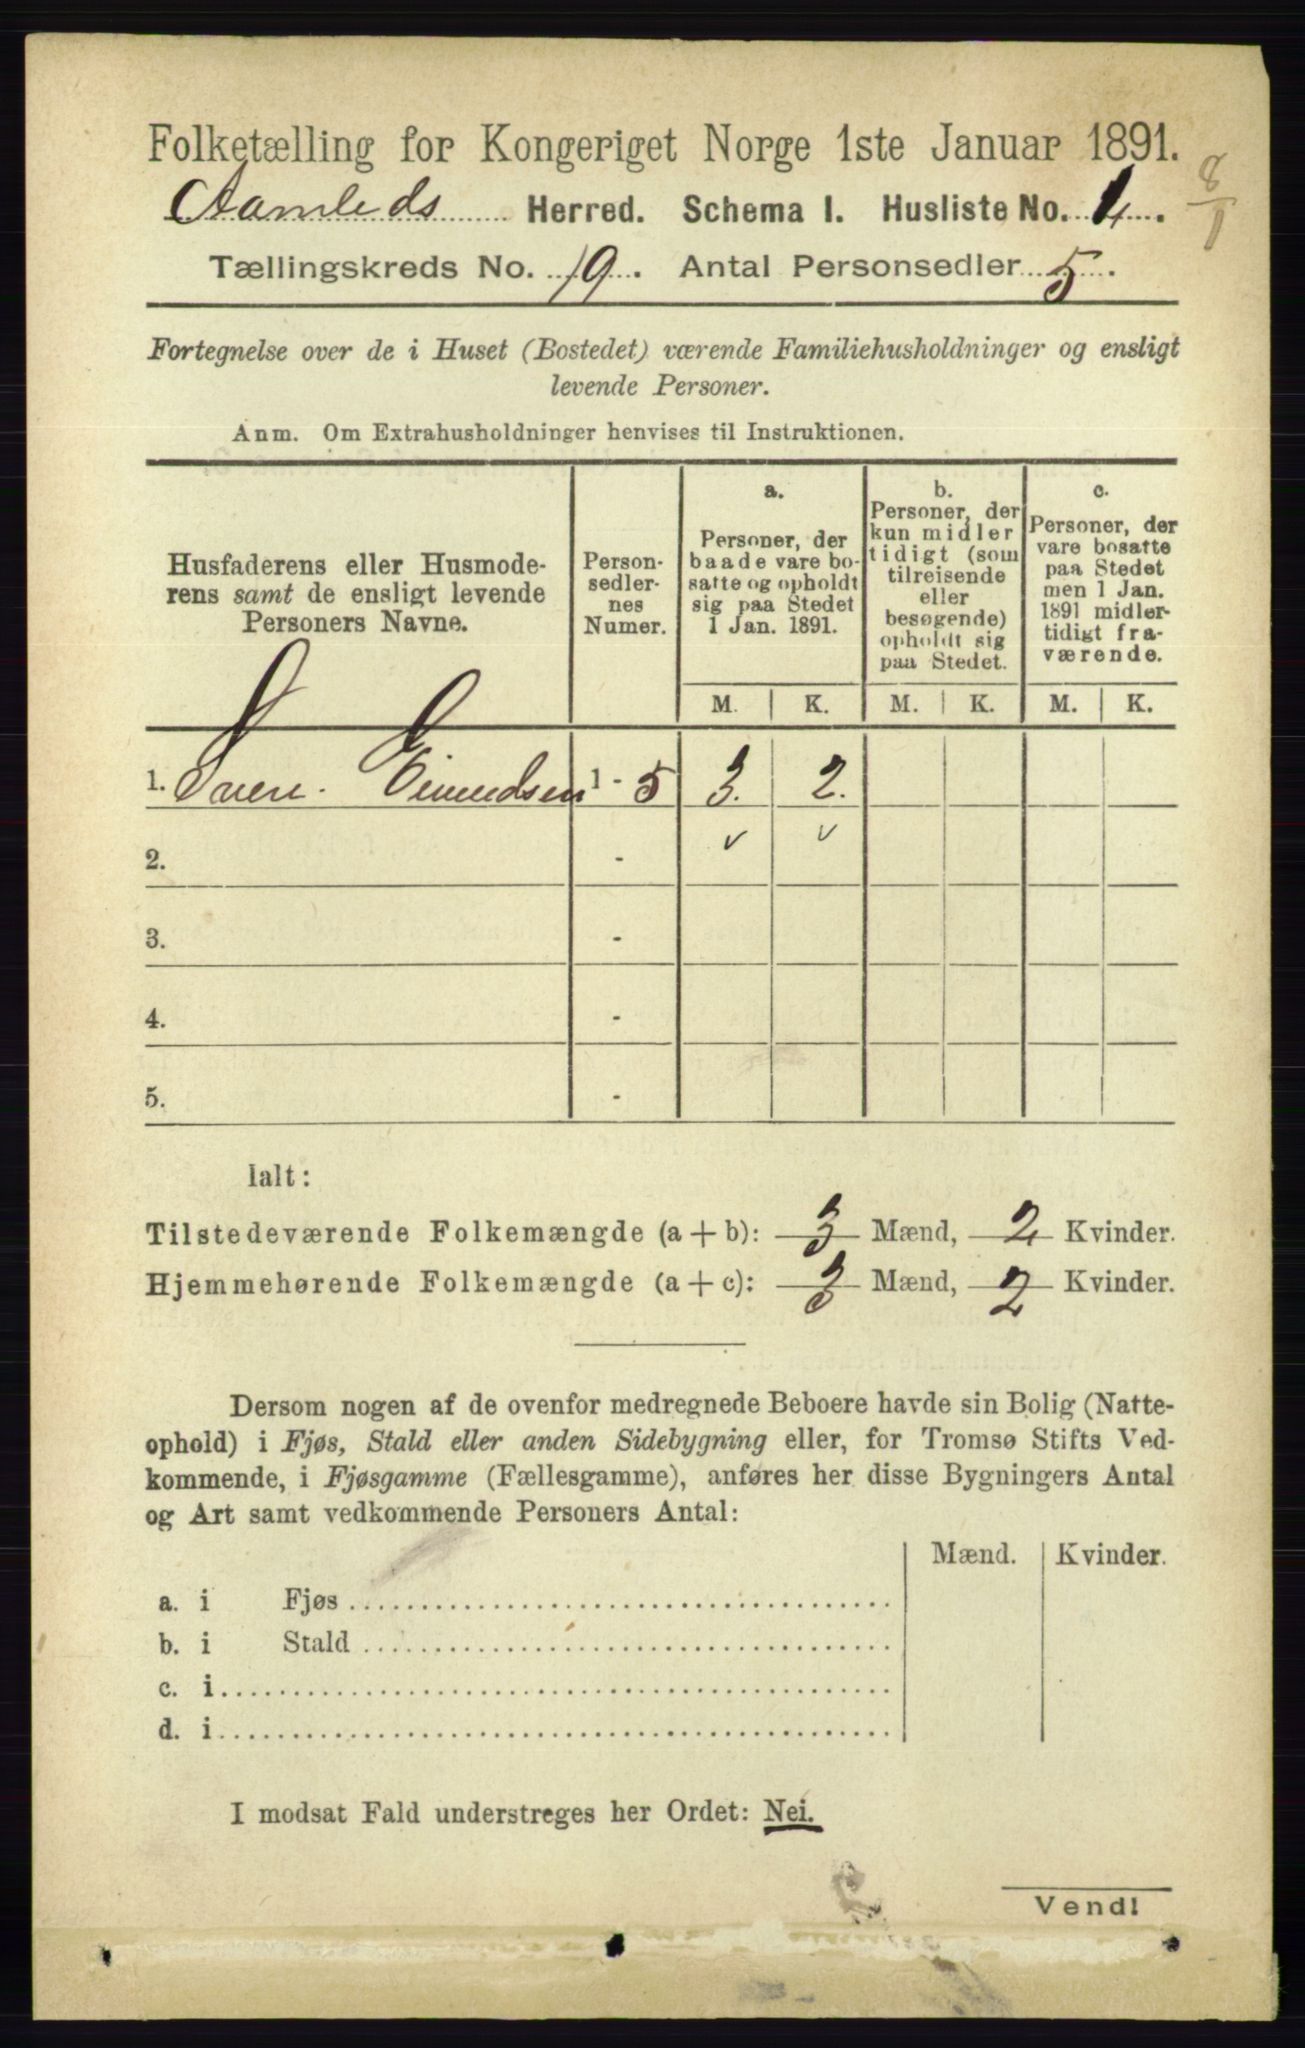 Folketælling for Kongeriget Norge 1ste Januar 1891.
Aamleds Herred. Schema I. Husliste No. 4.
8/1
Tællingskreds No. 19. Antal Personsedler 5.
Fortegnelse over de i Huset (Bostedet) værende Familiehusholdninger og ensligt
levende Personer.
Anm. Om Extrahusholdninger henvises til Instruktionen.
Husfaderens eller Husmode-
rens samt de ensligt levende
Personers Navne.
Person-
sedler-
nes
Numer.
a.
Personer, der
baade vare bo-
satte og opholdt
sig paa Stedet
1 Jan. 1891.
b.
Personer, der
kun midler
tidigt (som
tilreisende
eller
besøgende)
opholdt sig
paa Stedet.
c.
Personer, der
vare bosatte
paa Stedet
men 1 Jan.
1891 midler-
tidigt fra-
værende.
M. K. M. K. M. K.
1. Sven Eivindsen 1 - 5 3. 2.
2. - v v
3. -
4. -
5. -
Ialt:
Tilstedeværende Folkemængde (a + b): 3 Mænd, 2 Kvinder.
Hjemmehørende Folkemængde (a + c): 3 Mænd, 2 Kvinder.
Dersom nogen af de ovenfor medregnede Beboere havde sin Bolig (Natte-
ophold) i Fjøs, Stald eller anden Sidebygning eller, for Tromsø Stifts Ved-
kommende, i Fjøsgamme (Fællesgamme), anføres her disse Bygningers Antal
og Art samt vedkommende Personers Antal:
Mænd. Kvinder.
a. i Fjøs
b. i Stald
c. i
d. i
I modsat Fald understreges her Ordet: Nei.
Vend!